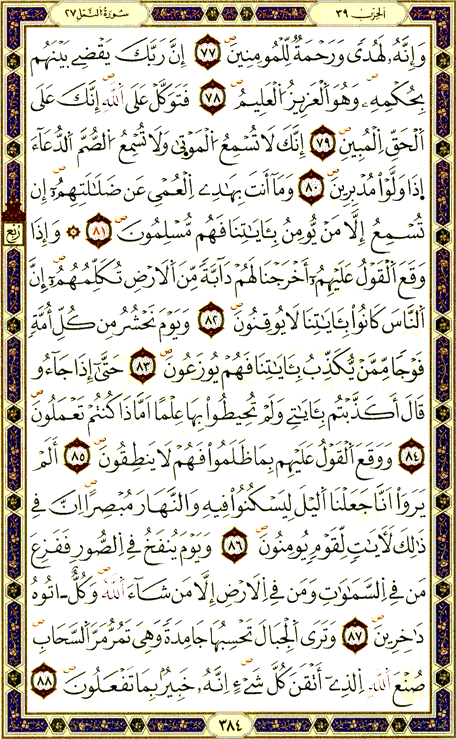 الحزب ٣٩
سورة النمل ٢٧
وَإِنَّهُۥ لَهُدىٗ وَرَحْمَةٞ لِّلْمُومِنِينَ ٧٧ إِنَّ رَبَّكَ يَقْضِے بَيْنَهُم
بِحُكْمِهِۦ وَهُوَ اَ۬لْعَزِيزُ اُ۬لْعَلِيمُ ٧٨ فَتَوَكَّلْ عَلَى اَ۬للَّهِ إِنَّكَ عَلَى
اَ۬لْحَقِّ اِ۬لْمُبِينِ ٧٩ إِنَّكَ لَا تُسْمِعُ اُ۬لْمَوْت۪يٰ وَلَا تُسْمِعُ اُ۬لصُّمَّ اَ۬لدُّعَآءَ
اِ۪ذَا وَلَّوْاْ مُدْبِرِينَ ٨٠ وَمَآ أَنتَ بِهَٰدِے اِ۬لْعُمْيِ عَن ضَلَٰلَتِهِمُۥٓ إِن
تُسْمِعُ إِلَّا مَنْ يُّومِنُ بِـَٔايَٰتِنَا فَهُم مُّسْلِمُونَ ٨١ ۞ وَإِذَا
ربع
وَقَعَ اَ۬لْقَوْلُ عَلَيْهِمُۥٓ أَخْرَجْنَا لَهُمْ دَآبَّةٗ مِّنَ اَ۬لَارْضِ تُكَلِّمُهُمُۥٓ إِنَّ
اَ۬لنَّاسَ كَانُواْ بِـَٔايَٰتِنَا لَا يُوقِنُونَ ٨٢ وَيَوْمَ نَحْشُرُ مِن كُلِّ أُمَّةٖ
فَوْجاٗ مِّمَّنْ يُّكَذِّبُ بِـَٔايَٰتِنَا فَهُمْ يُوزَعُونَ ٨٣ حَتَّىٰٓ إِذَا جَآءُو
قَالَ أَكَذَّبْتُم بِـَٔايَٰتِے وَلَمْ تُحِيطُواْ بِهَا عِلْماً اَمَّاذَا كُنتُمْ تَعْمَلُونَ
٨٤ وَوَقَعَ اَ۬لْقَوْلُ عَلَيْهِم بِمَا ظَلَمُواْ فَهُمْ لَا يَنطِقُونَ ٨٥ أَلَمْ
يَرَوَاْ اَنَّا جَعَلْنَا اَ۬ليْلَ لِيَسْكُنُواْ فِيهِ وَالنَّهَارَ مُبْصِراً اِنَّ فِے
ذَٰلِكَ لَأٓيَٰتٖ لِّقَوْمٖ يُومِنُونَ ٨٦ وَيَوْمَ يُنفَخُ فِے اِ۬لصُّورِ فَفَزِعَ
مَن فِے اِ۬لسَّمَٰوَٰتِ وَمَن فِے اِ۬لَارْضِ إِلَّا مَن شَآءَ اَ۬للَّهُ وَكُلٌّ ـ اتُوهُ
دَٰخِرِينَ ٨٧ وَتَرَى اَ۬لْجِبَالَ تَحْسِبُهَا جَامِدَةٗ وَهْىَ تَمُرُّ مَرَّ اَ۬لسَّحَابِ
صُنْعَ اَ۬للَّهِ اِ۬لذِےٓ أَتْقَنَ كُلَّ شَےْءٍ اِنَّهُۥ خَبِيرُۢ بِمَا تَفْعَلُونَ ٨٨
٣٨٤